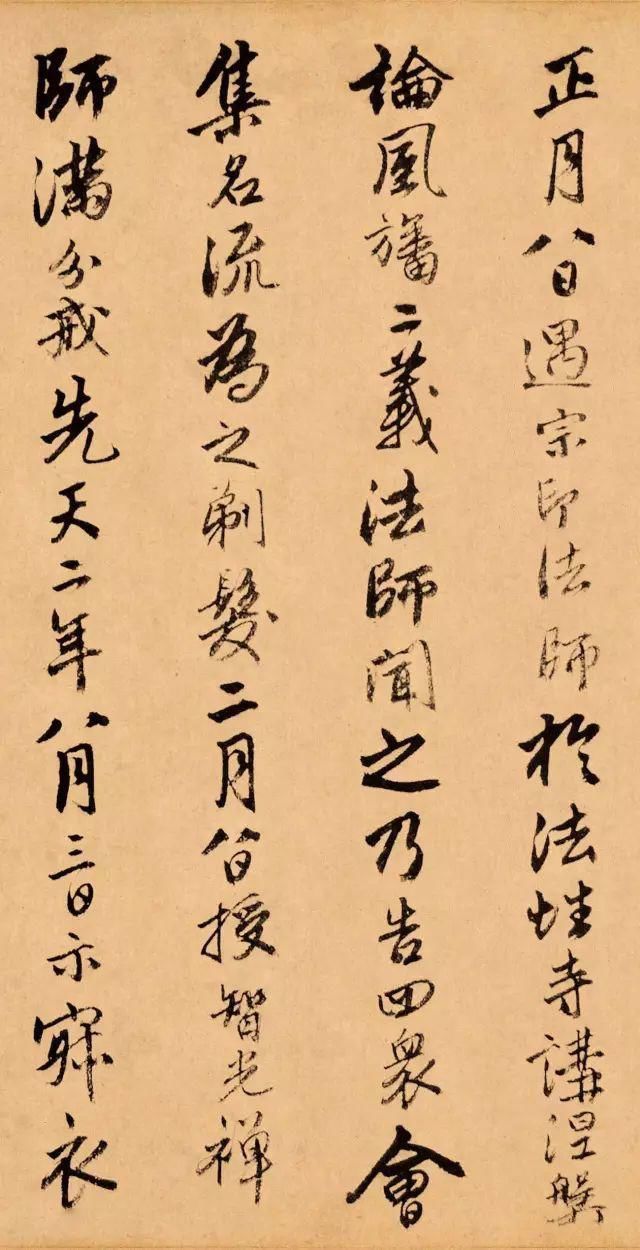 正月八日遇宗印法師於法性寺講涅盤
論風旛二義法師聞之乃告四衆會
集名流為之剃髮二月八日授智光禪
師滿分戒先天二年八月三日示寂衣